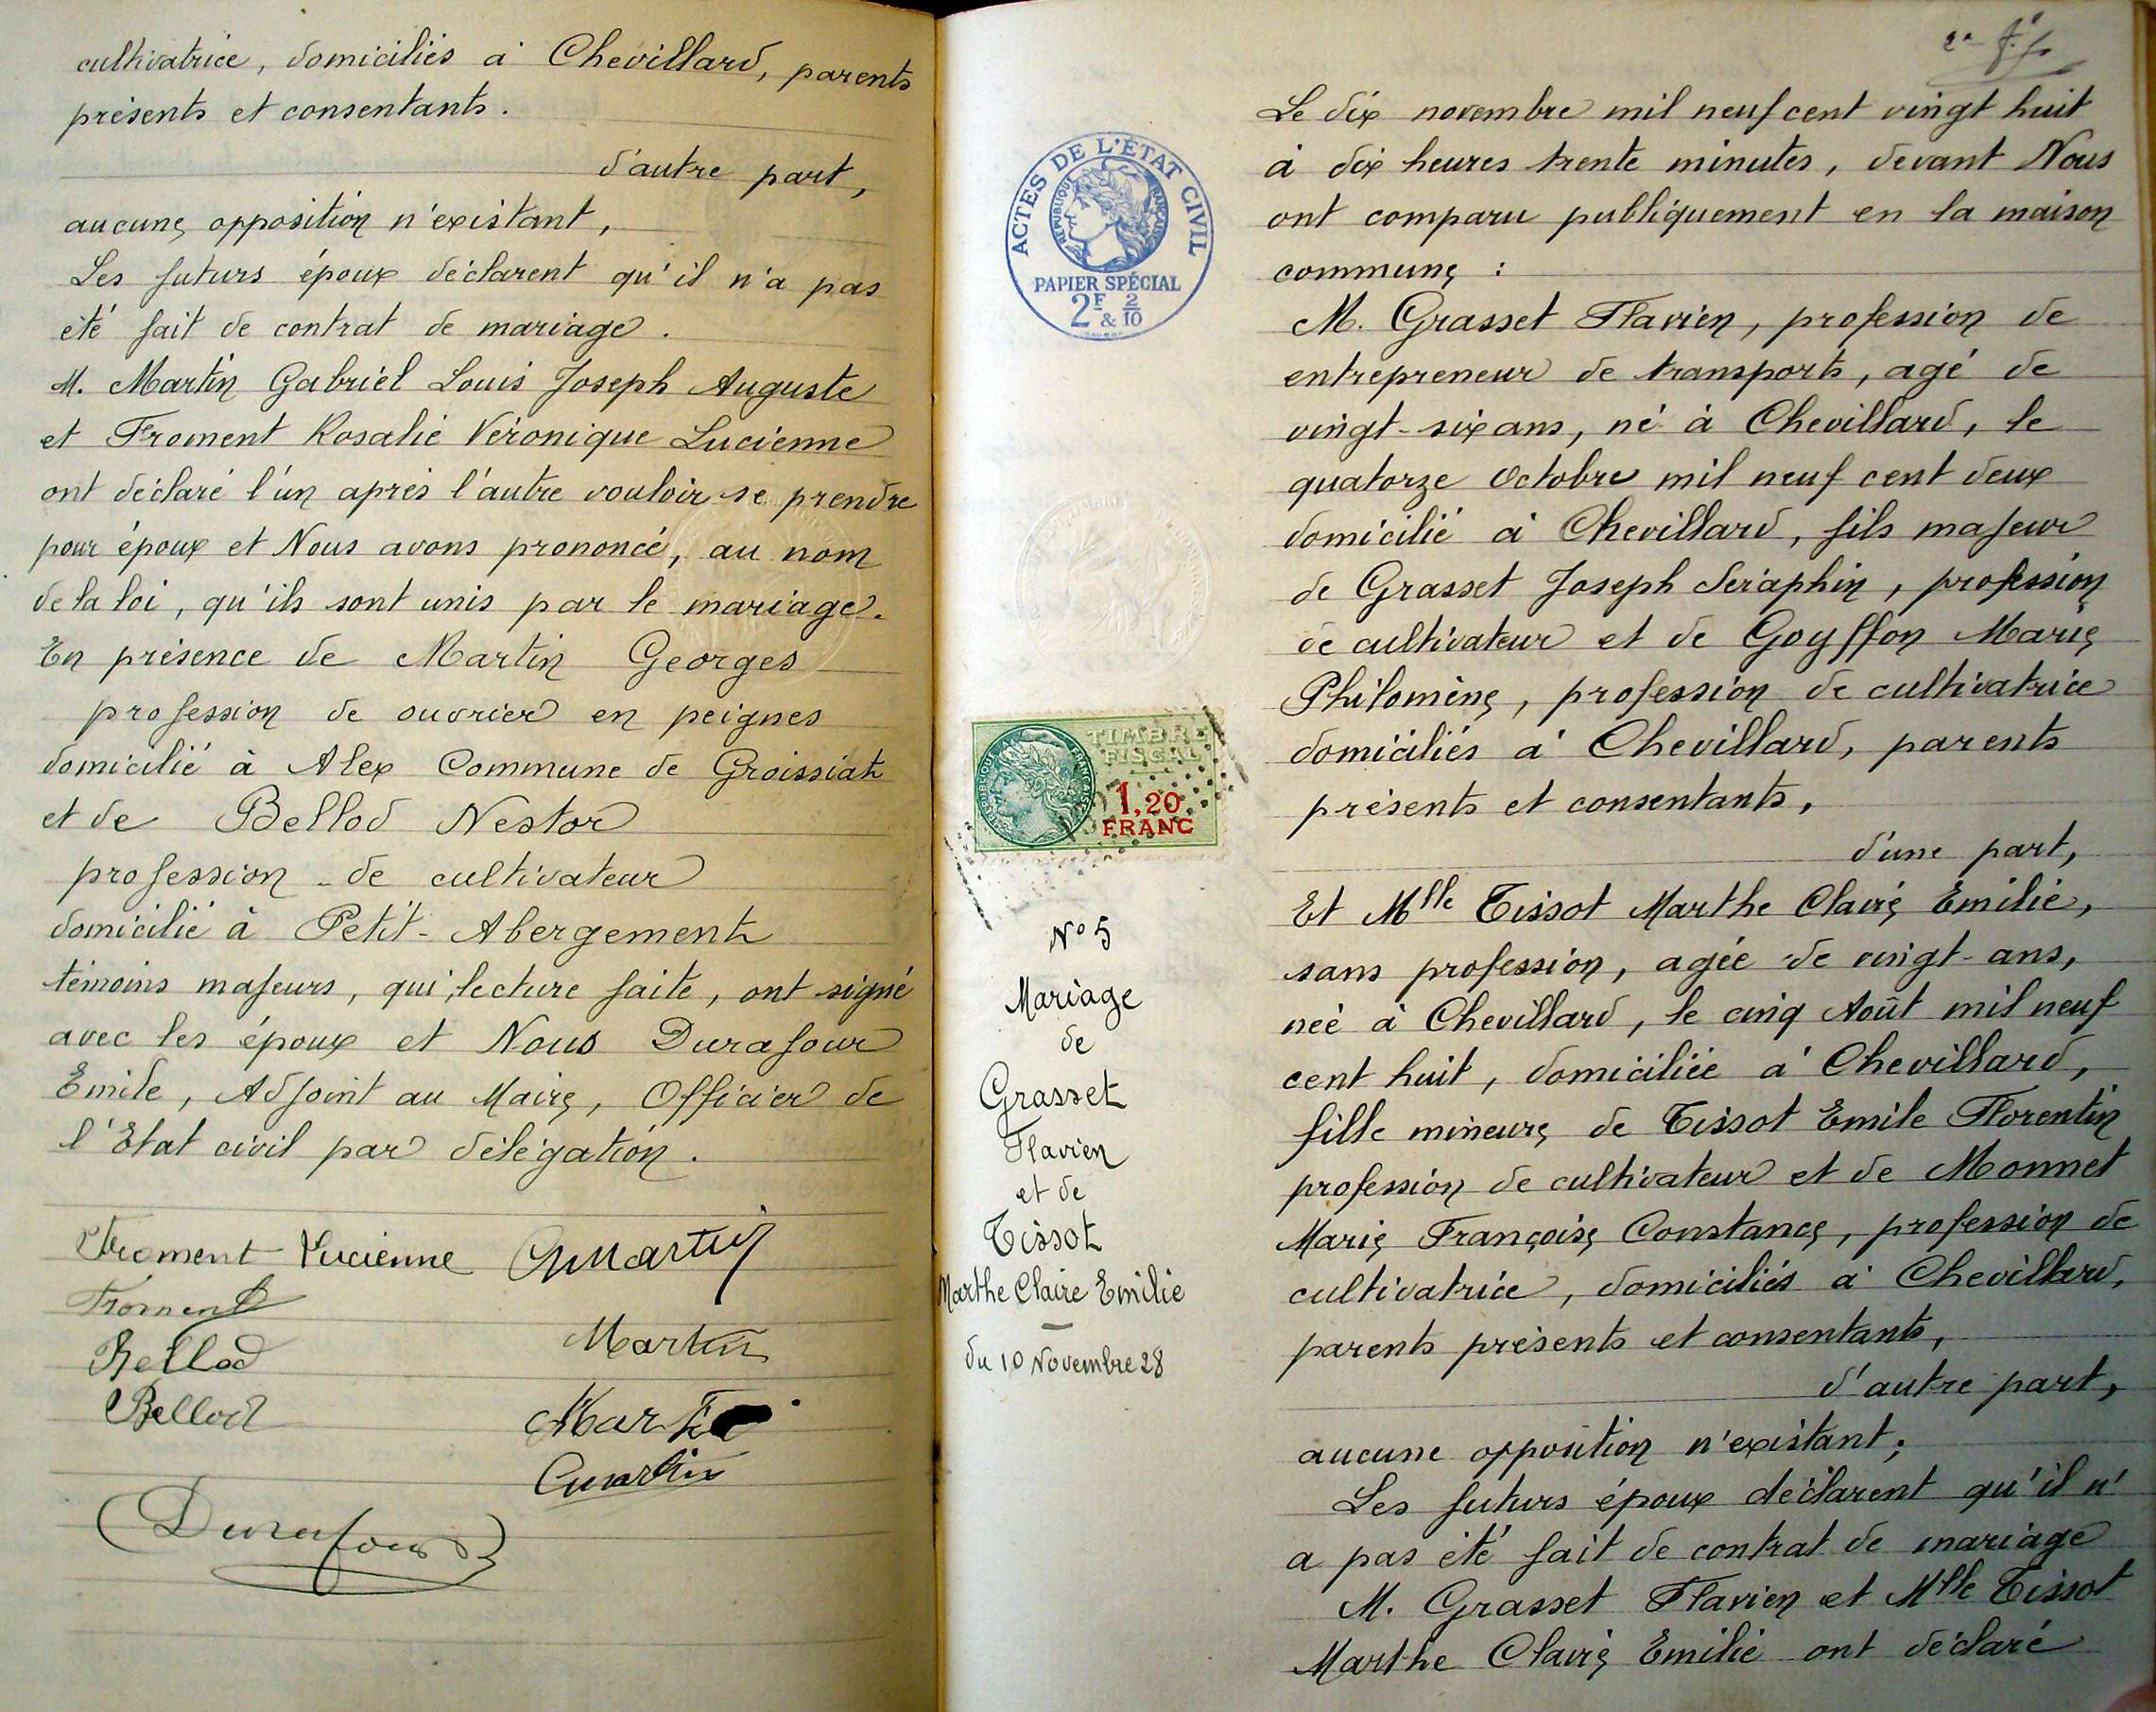 cultivatrice, domiciliés à Chevillard, parents
présents et consentants.
d'autre part,
aucune opposition n'existant,
Les futurs époux déclarent qu'il n'a pas
été fait de contrat de mariage.
M. Martin Gabriel Louis Joseph Auguste
et Froment Rosalie Véronique Lucienne
ont déclaré l'un après l'autre vouloir se prendre
pour époux et Nous avons prononcé, au nom
de la loi, qu'ils sont unis par le mariage.
En présence de Martin Georges
profession de ouvrier en peignes
domicilié à Alex Commune de Groissiat
et de Bellod Nestor
profession de cultivateur
domicilié à Petit-Abergement
témoins majeurs, qui, lecture faite, ont signé
avec les époux et Nous Durafour
Emile, Adjoint au Maire, Officier de
l'Etat civil par délégation.
Froment Lucienne GMartin
Froment
Martin
Bellod
Bellod
Martin
Durafour
ACTES DE L'ÉTAT CIVIL
RÉPUBLIQUE FRANÇAISE
PAPIER SPÉCIAL
2F & 2/10
RÉPUBLIQUE FRANÇAISE
TIMBRE
FISCAL
1,20
FRANC
N° 5
Mariage
de
Grasset
Flavien
et de
Tissot
Marthe Claire Emilie
du 10 Novembre 28
Le dix novembre mil neuf cent vingt huit
à dix heures trente minutes, devant Nous
ont comparu publiquement en la maison
commune :
M. Grasset Flavien, profession de
entrepreneur de transports, agé de
vingt-six ans, né à Chevillard, le
quatorze Octobre mil neuf cent deux
domicilié à Chevillard, fils majeur
de Grasset Joseph Séraphin, profession
de cultivateur et de Goyffon Marie
Philomène, profession de cultivatrice
domiciliés à Chevillard, parents
présents et consentants,
d'une part,
Et Mlle Tissot Marthe Claire Emilie,
sans profession, agée de vingt-ans,
née à Chevillard, le cinq Août mil neuf
cent huit, domiciliée à Chevillard,
fille mineure de Tissot Emile Florentin
profession de cultivateur et de Monnet
Marie Françoise Constance, profession de
cultivatrice, domiciliés à Chevillard,
parents présents et consentants,
d'autre part,
aucune opposition n'existant;
Les futurs époux déclarent qu'il n'
a pas été fait de contrat de mariage
M. Grasset Flavien et Mlle Tissot
Marthe Claire Emilie ont déclaré